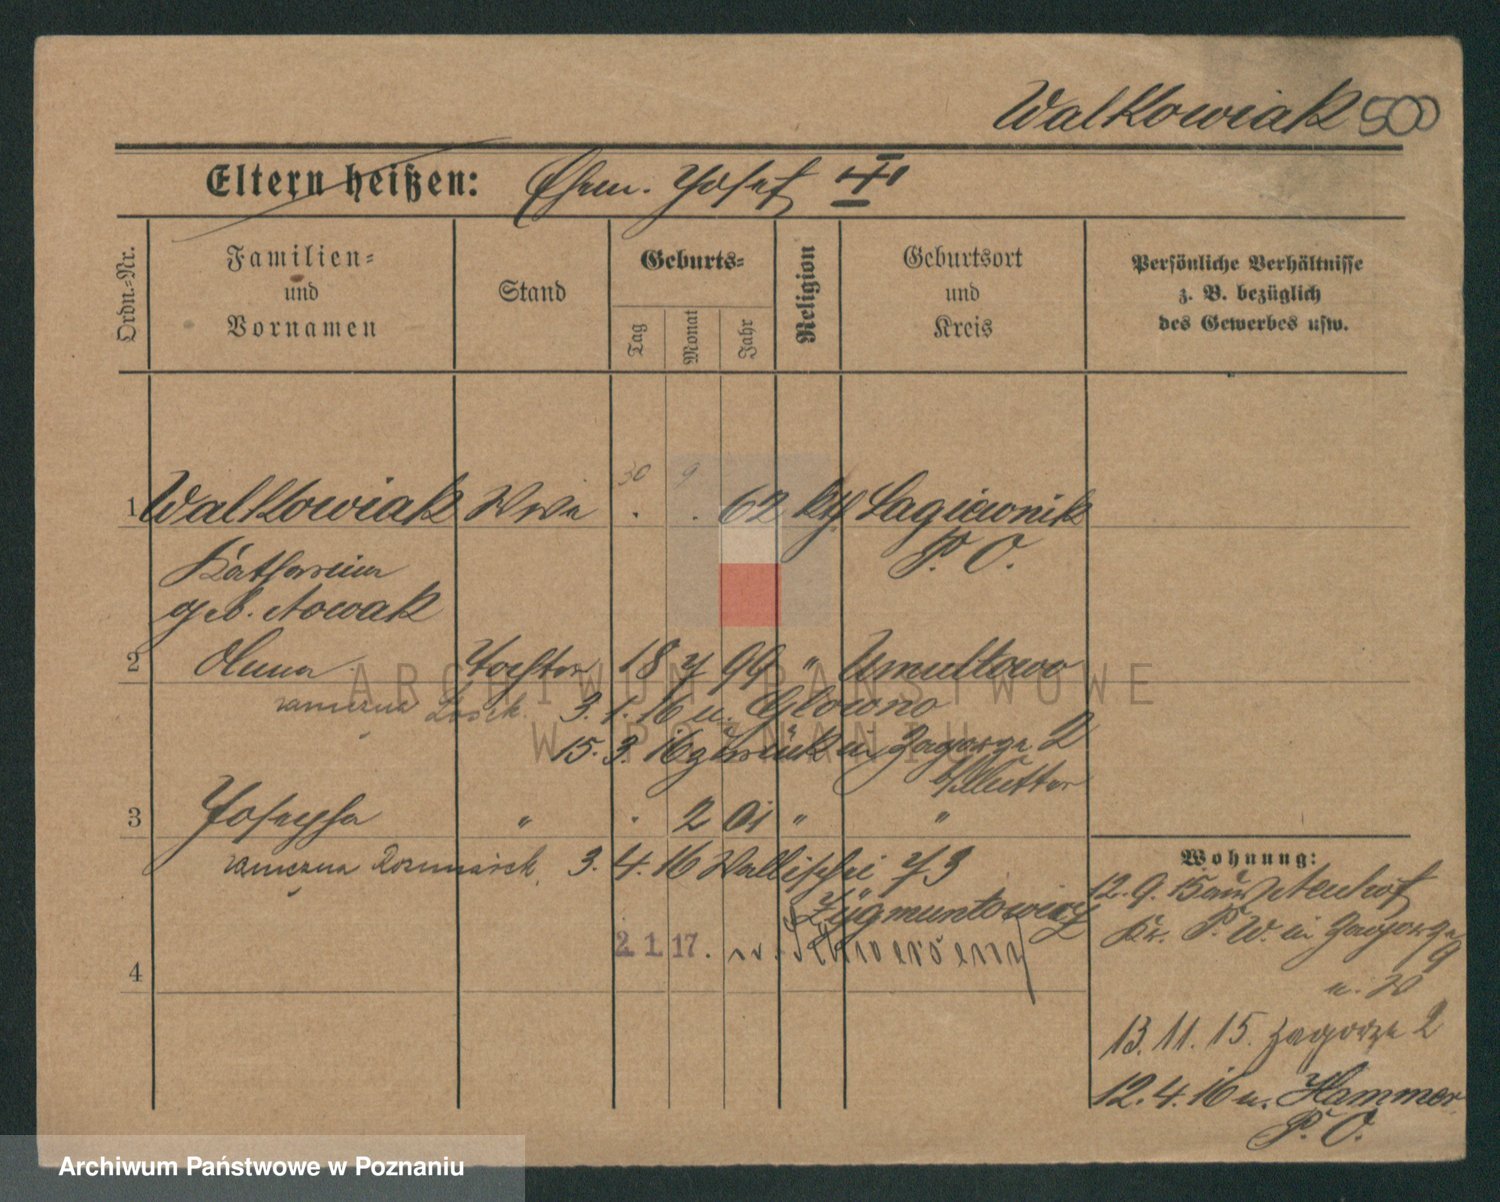 Walkowiak 500
Eltern heißen: Ehem. Josef
Ordn.-Nr.
Familien-
und
Vornamen
Stand
Geburts-
Tag
Monat
Jahr
Religion
Geburtsort
und
Kreis
Persönliche Verhältnisse
z. B. bezüglich
des Gewerbes usw.
30 9
1 Walkowiak Wwe 62 kth Lagiewnik
P. O.
Katharina
geb. Nowak
2 Anna Tochter 18 7 96 " Umultowo
zamezna 3. 1. 16 n. Glowno
15. 3. 16 zurück n. Zagorze 2
b/Mutter
3 Josepha " . 2 01 " "
zamezna 3. 4. 16 Wallischei 73
Zygmuntowicz
2. 1. 17. n. Schwersenz
4
Wohnung:
12. 9. 15 aus Neuhof
Kr. P. W. in Zagorze
9
13. 11. 15. Zagorze 2
12. 4. 16 n. Hammer
P. O.
ARCHIWUM PAŃSTWOWE
W POZNANIU
Archiwum Państwowe w Poznaniu